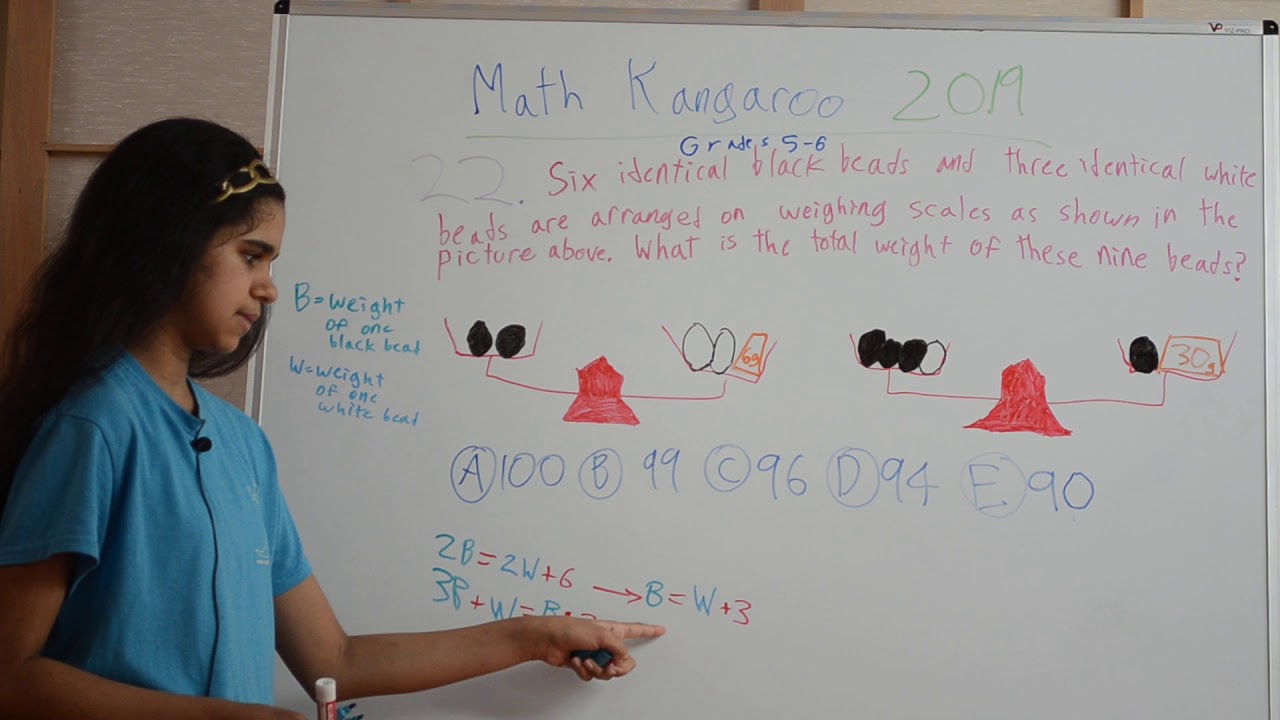 VIZ-PRO
Math Kangaroo 2019
Grades 5-6
22. Six identical black beads and three identical white
beads are arranged on weighing scales as shown in the
picture above. What is the total weight of these nine beads?
B=weight
of one
black bead
W=weight
of one
white bead
6g
30g
A 100 B 99 C 96 D 94 E 90
2B=2W+6 → B=W+3
3B+W=B+3